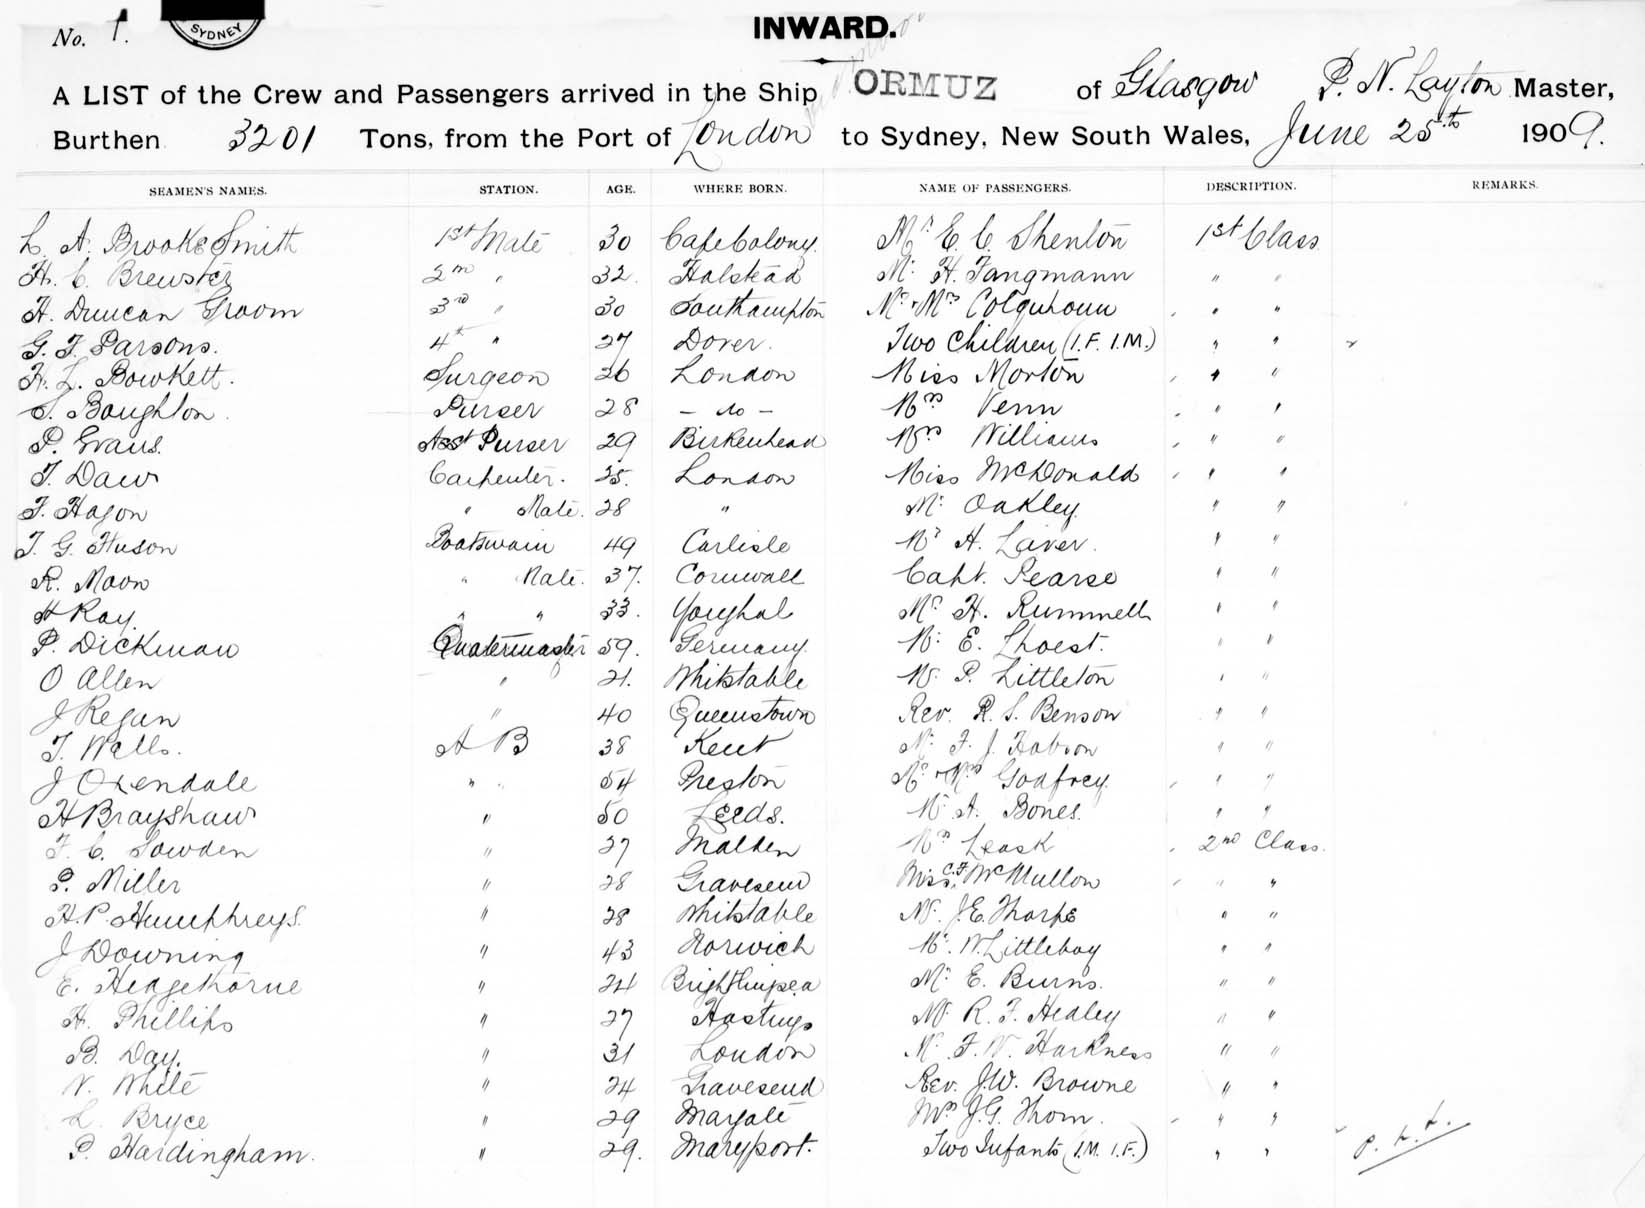 No. 1.
SYDNEY
INWARD.
A LIST of the Crew and Passengers arrived in the Ship ORMUZ of Glasgow P. N. Layton Master,
Burthen 3201 Tons, from the Port of London to Sydney, New South Wales, June 25th 1909.
SEAMEN'S NAMES. STATION. AGE. WHERE BORN. NAME OF PASSENGERS. DESCRIPTION. REMARKS.
L. A. Brooke Smith 1st Mate 30 Cape Colony. Mr E. C. Shenton 1st Class
H. C. Brewster 2nd " 32. Halstead Mr H. Tangmann " "
H. Duncan Groom 3rd " 30 Southampton Mr & Mrs Colquhoun " "
G. F. Parsons. 4th " 27 Dover. Two Children (1.F. 1.M.) " "
H. L. Bowkett. Surgeon 26 London Miss Morton " "
S. Boughton. Purser 28 - do - Mrs Venn " "
P. Evans. Asst Purser 29 Birkenhead Mrs Williams " "
T. Daw Carpenter. 25. London Miss McDonald " "
F. Hagon " Mate. 28 " Mr Oakley. " "
T. G. Huson Boatswain 49 Carlisle Mr H. Laver. " "
R. Moon " Mate. 37. Cornwall Capt. Pearse " "
H Ray. " " 33. Youghal Mr H. Rummell " "
P. Dickman Quatermaster 59. Germany. Mr E. Lhoest. " "
O Allen " 21. Whitstable Mr P. Littleton " "
J Regan " 40 Queenstown Rev. R. S. Benson " "
T. Wells. A B 38 Kent Mr F. J. Hobson " "
J Oxendale " 54 Preston Mr & Mrs Godfrey. " "
H Brayshaw " 50 Leeds. Mr A. Bones. " "
F. C. Sowden " 27 Malden Mrs Leask 2nd Class.
P. Miller " 28 Gravesend Miss C. F. McMullon " "
H. P. Humphreys. " 28 Whitstable Mr J. E. Thorpe " "
J Downing " 43 Norwich Mr W. Littleboy " "
E. Hedgethorne " 24 Brightlingsea Mr E. Burns. " "
H. Phillips " 27 Hastings Mr R. F. Hedley " "
B. Day. " 31 London Mr F. W. Harkness " "
W. White " 24 Gravesend Rev. J. W. Browne " "
L. Bryce " 29 Margate Mrs J. G. Thom. " "
P. Hardingham. " 29. Maryport. Two Infants (1.M. 1.F.) " "